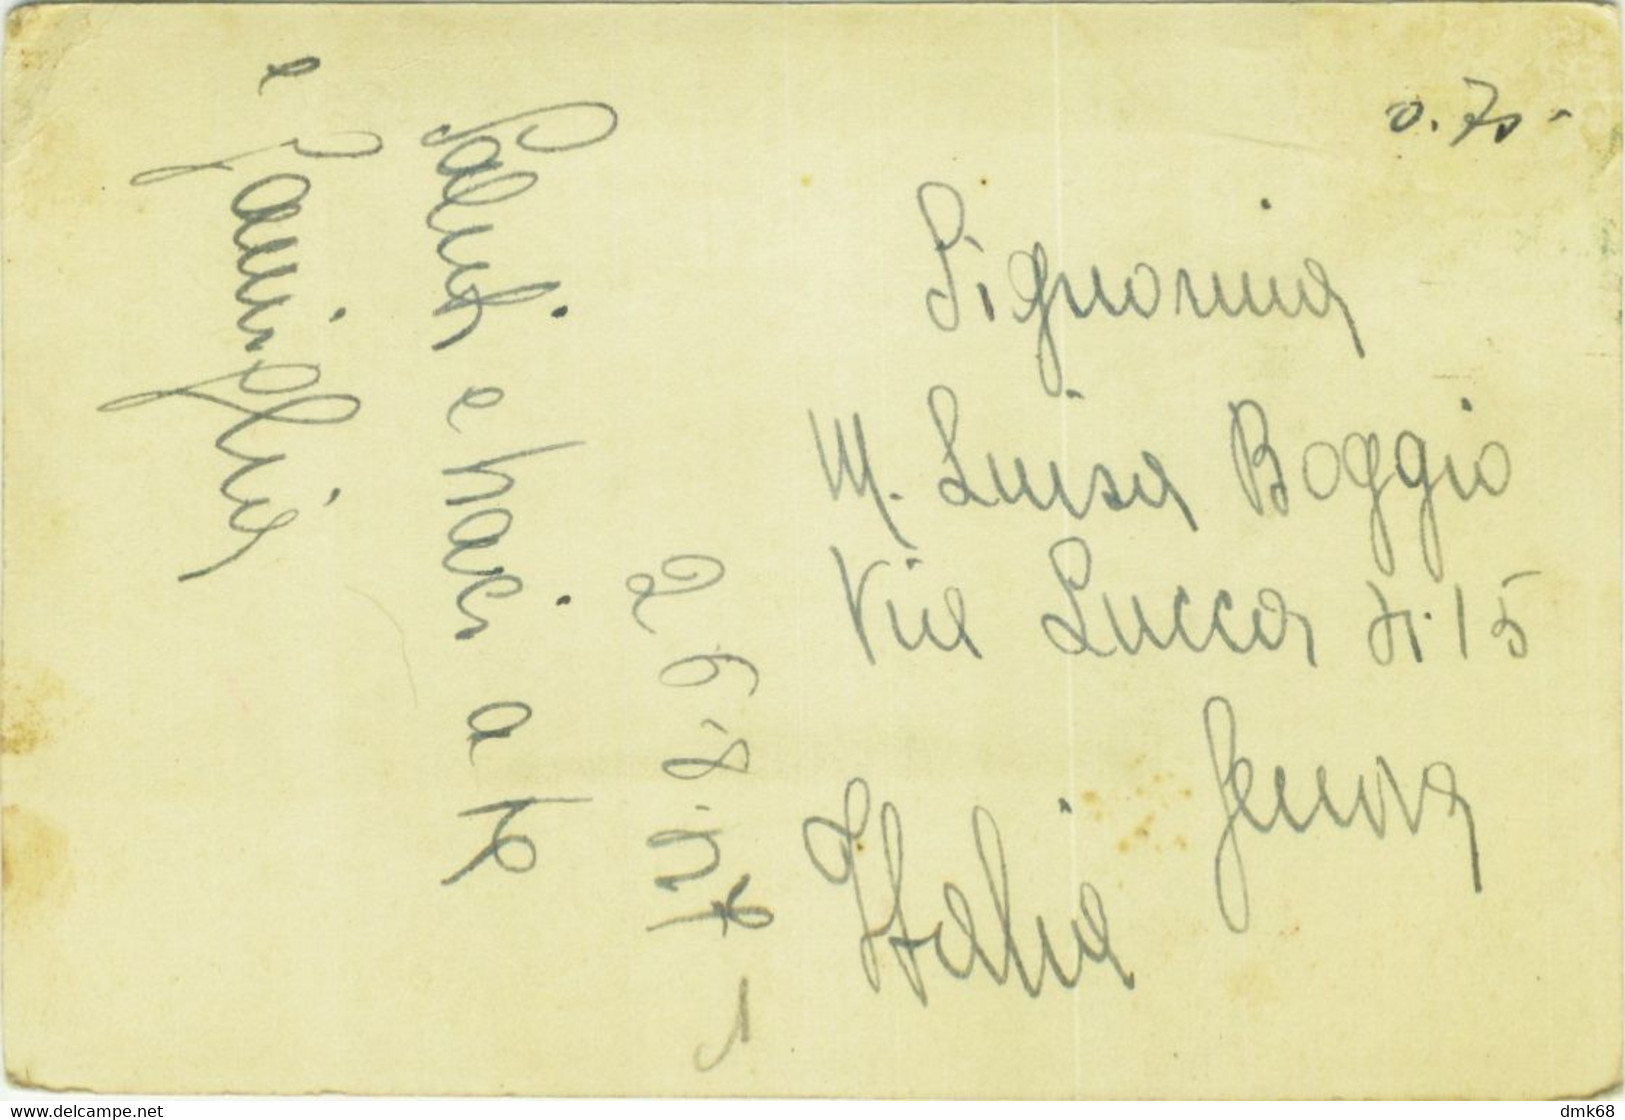 0.70-
Signorina
M. Luisa Boggio
Via Lucca N. 15
Genova
Italia
26.8.
Saluti e baci a te
e famiglia
www.delcampe.net
dmk68